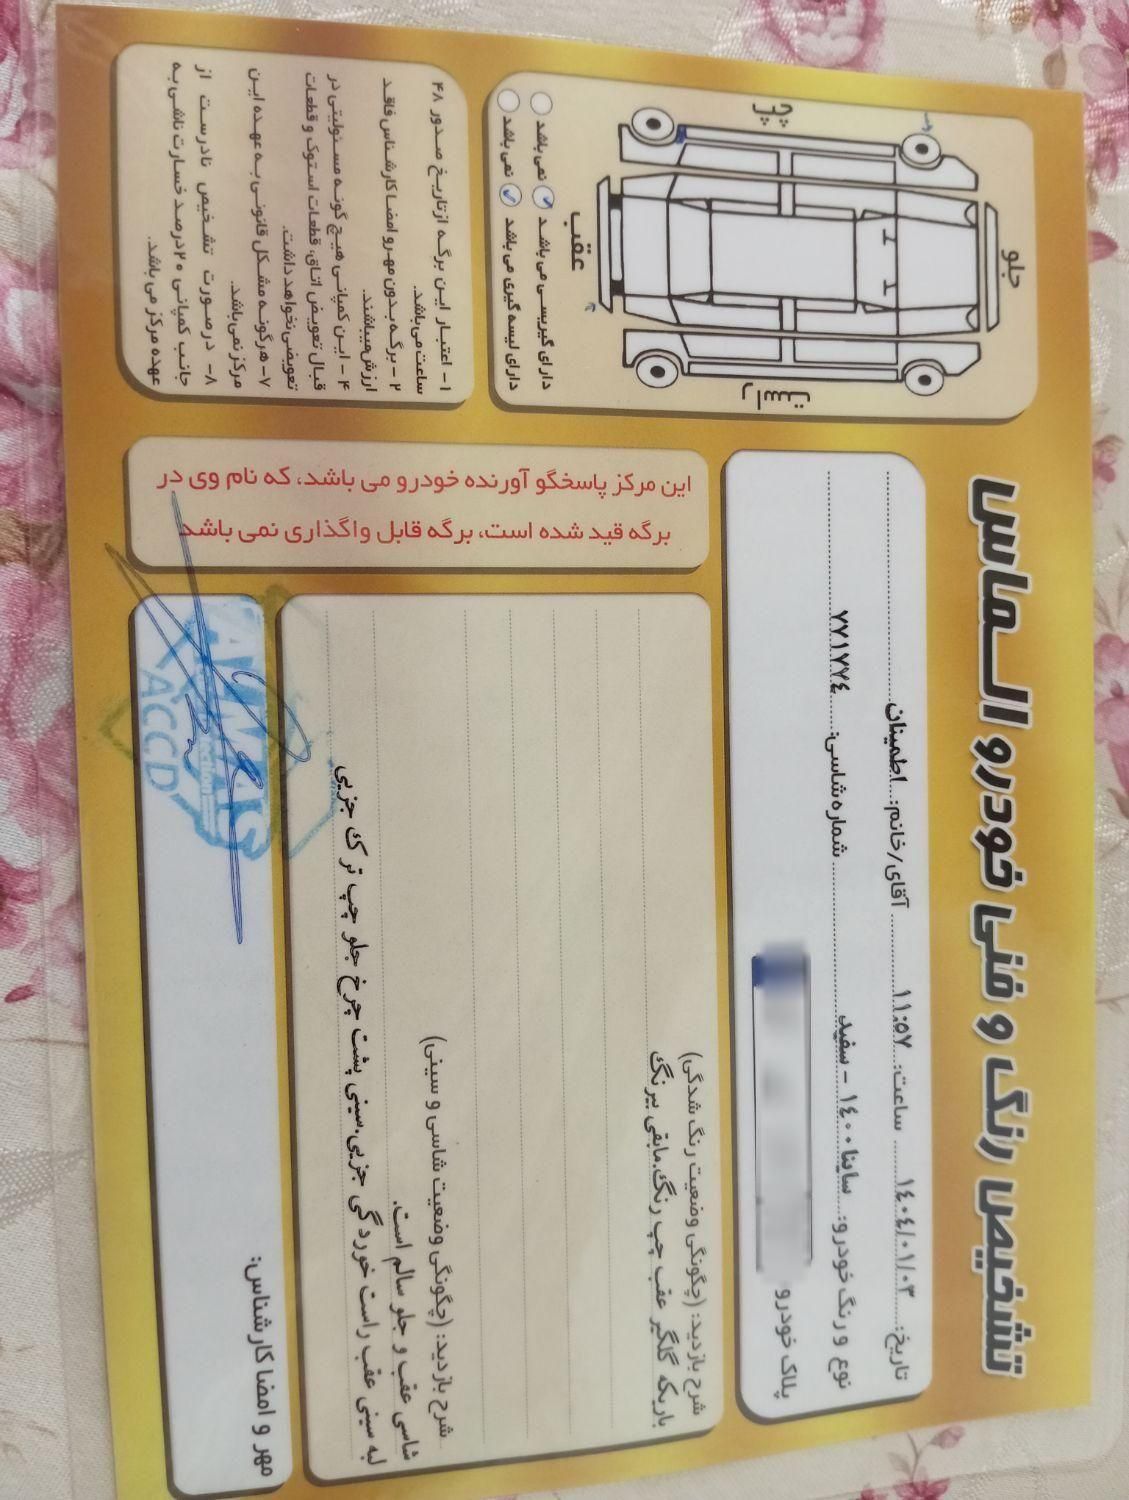 تشخیص رنگ و فنی خودرو الماس
تاریخ: ۱۴۰۴/۰۱/۰۳ ساعت: ۱۱:۵۷ آقای/خانم: اطمینان
نوع و رنگ خودرو: ساینا ۱۴۰۰ - سفید شماره شاسی: ۷۷۱۷۷۴
پلاک خودرو
شرح بازدید: (چگونگی وضعیت رنگ شدگی)
باریکه گلگیر عقب چپ رنگ.مابقی بیرنگ
شرح بازدید: (چگونگی وضعیت شاسی و سینی)
شاسی عقب و جلو سالم است.
لبه سینی عقب راست خوردگی جزیی.سینی پشت چرخ جلو چپ ترک جزیی
مهر و امضا کارشناس:
ALMAS
ACCD
این مرکز پاسخگو آورنده خودرو می باشد، که نام وی در
برگه قید شده است، برگه قابل واگذاری نمی باشد
جلو
چپ
راست
عقب
دارای گیربسی می باشد نمی باشد
دارای لیسه گیری می باشد نمی باشد
۱- اعتبار این برگه از تاریخ صدور ۴۸
ساعت می باشد.
۲- برگه بدون مهر و امضا کارشناس فاقد
ارزش میباشند.
۴- این کمپانی هیچ گونه مسئولیتی در
قبال تعویض اتاق، قطعات استوک و قطعات
تعویضی نخواهد داشت.
۷- هرگونه مشکل قانونی به عهده این
مرکز نمی باشد.
۸- درصورت تشخیص نادرست از
جانب کمپانی ۲۰ درصد خسارت ناشی به
عهده مرکز می باشد.